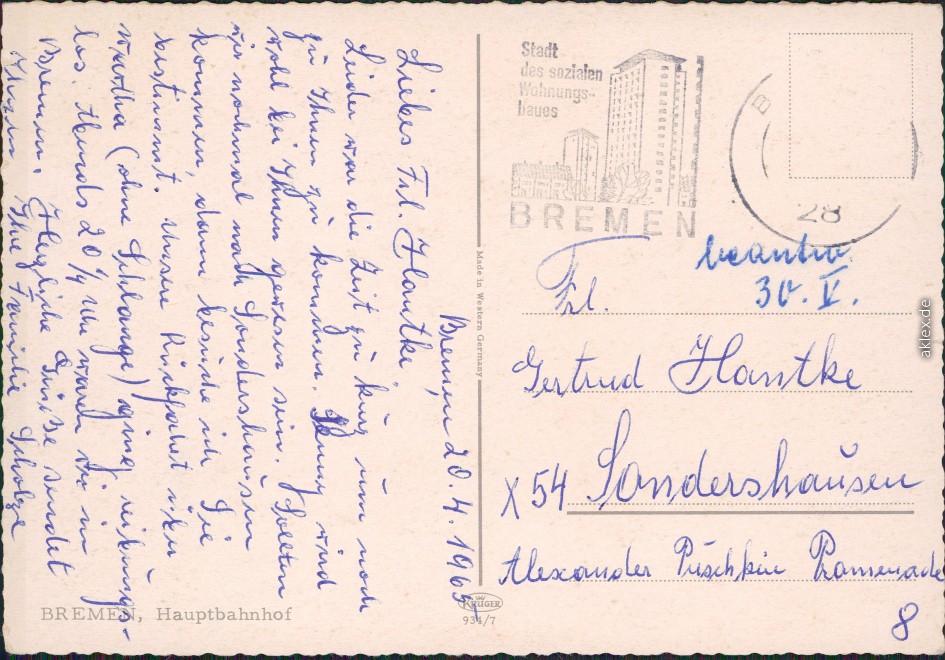 Bremen, 20.4.1965
Liebes Frl. Hantke,
Leider war die Zeit zu kurz um noch
zu Ihnen zu kommen. Henny wird
wohl bei Ihnen gewesen sein. Sollten
wir nochmal nach Sondershausen
kommen, dann besuche ich Sie
bestimmt. Unsere Rückfahrt über
wartha (ohne Schlange) ging reibungs-
los. Abends 20¼ Uhr waren wir in
Bremen. Herzliche Grüße sendet
Ihnen Ihre Familie Scholze
BREMEN, Hauptbahnhof
Made in Western Germany
KRÜGER
934/7
Stadt
des sozialen
Wohnungs-
baues
BREMEN
B
28
beantw.
30. V.
Frl.
Gertrud Hantke
X 54 Sondershausen
Alexander Puschkin Promenade
8
aklex.de